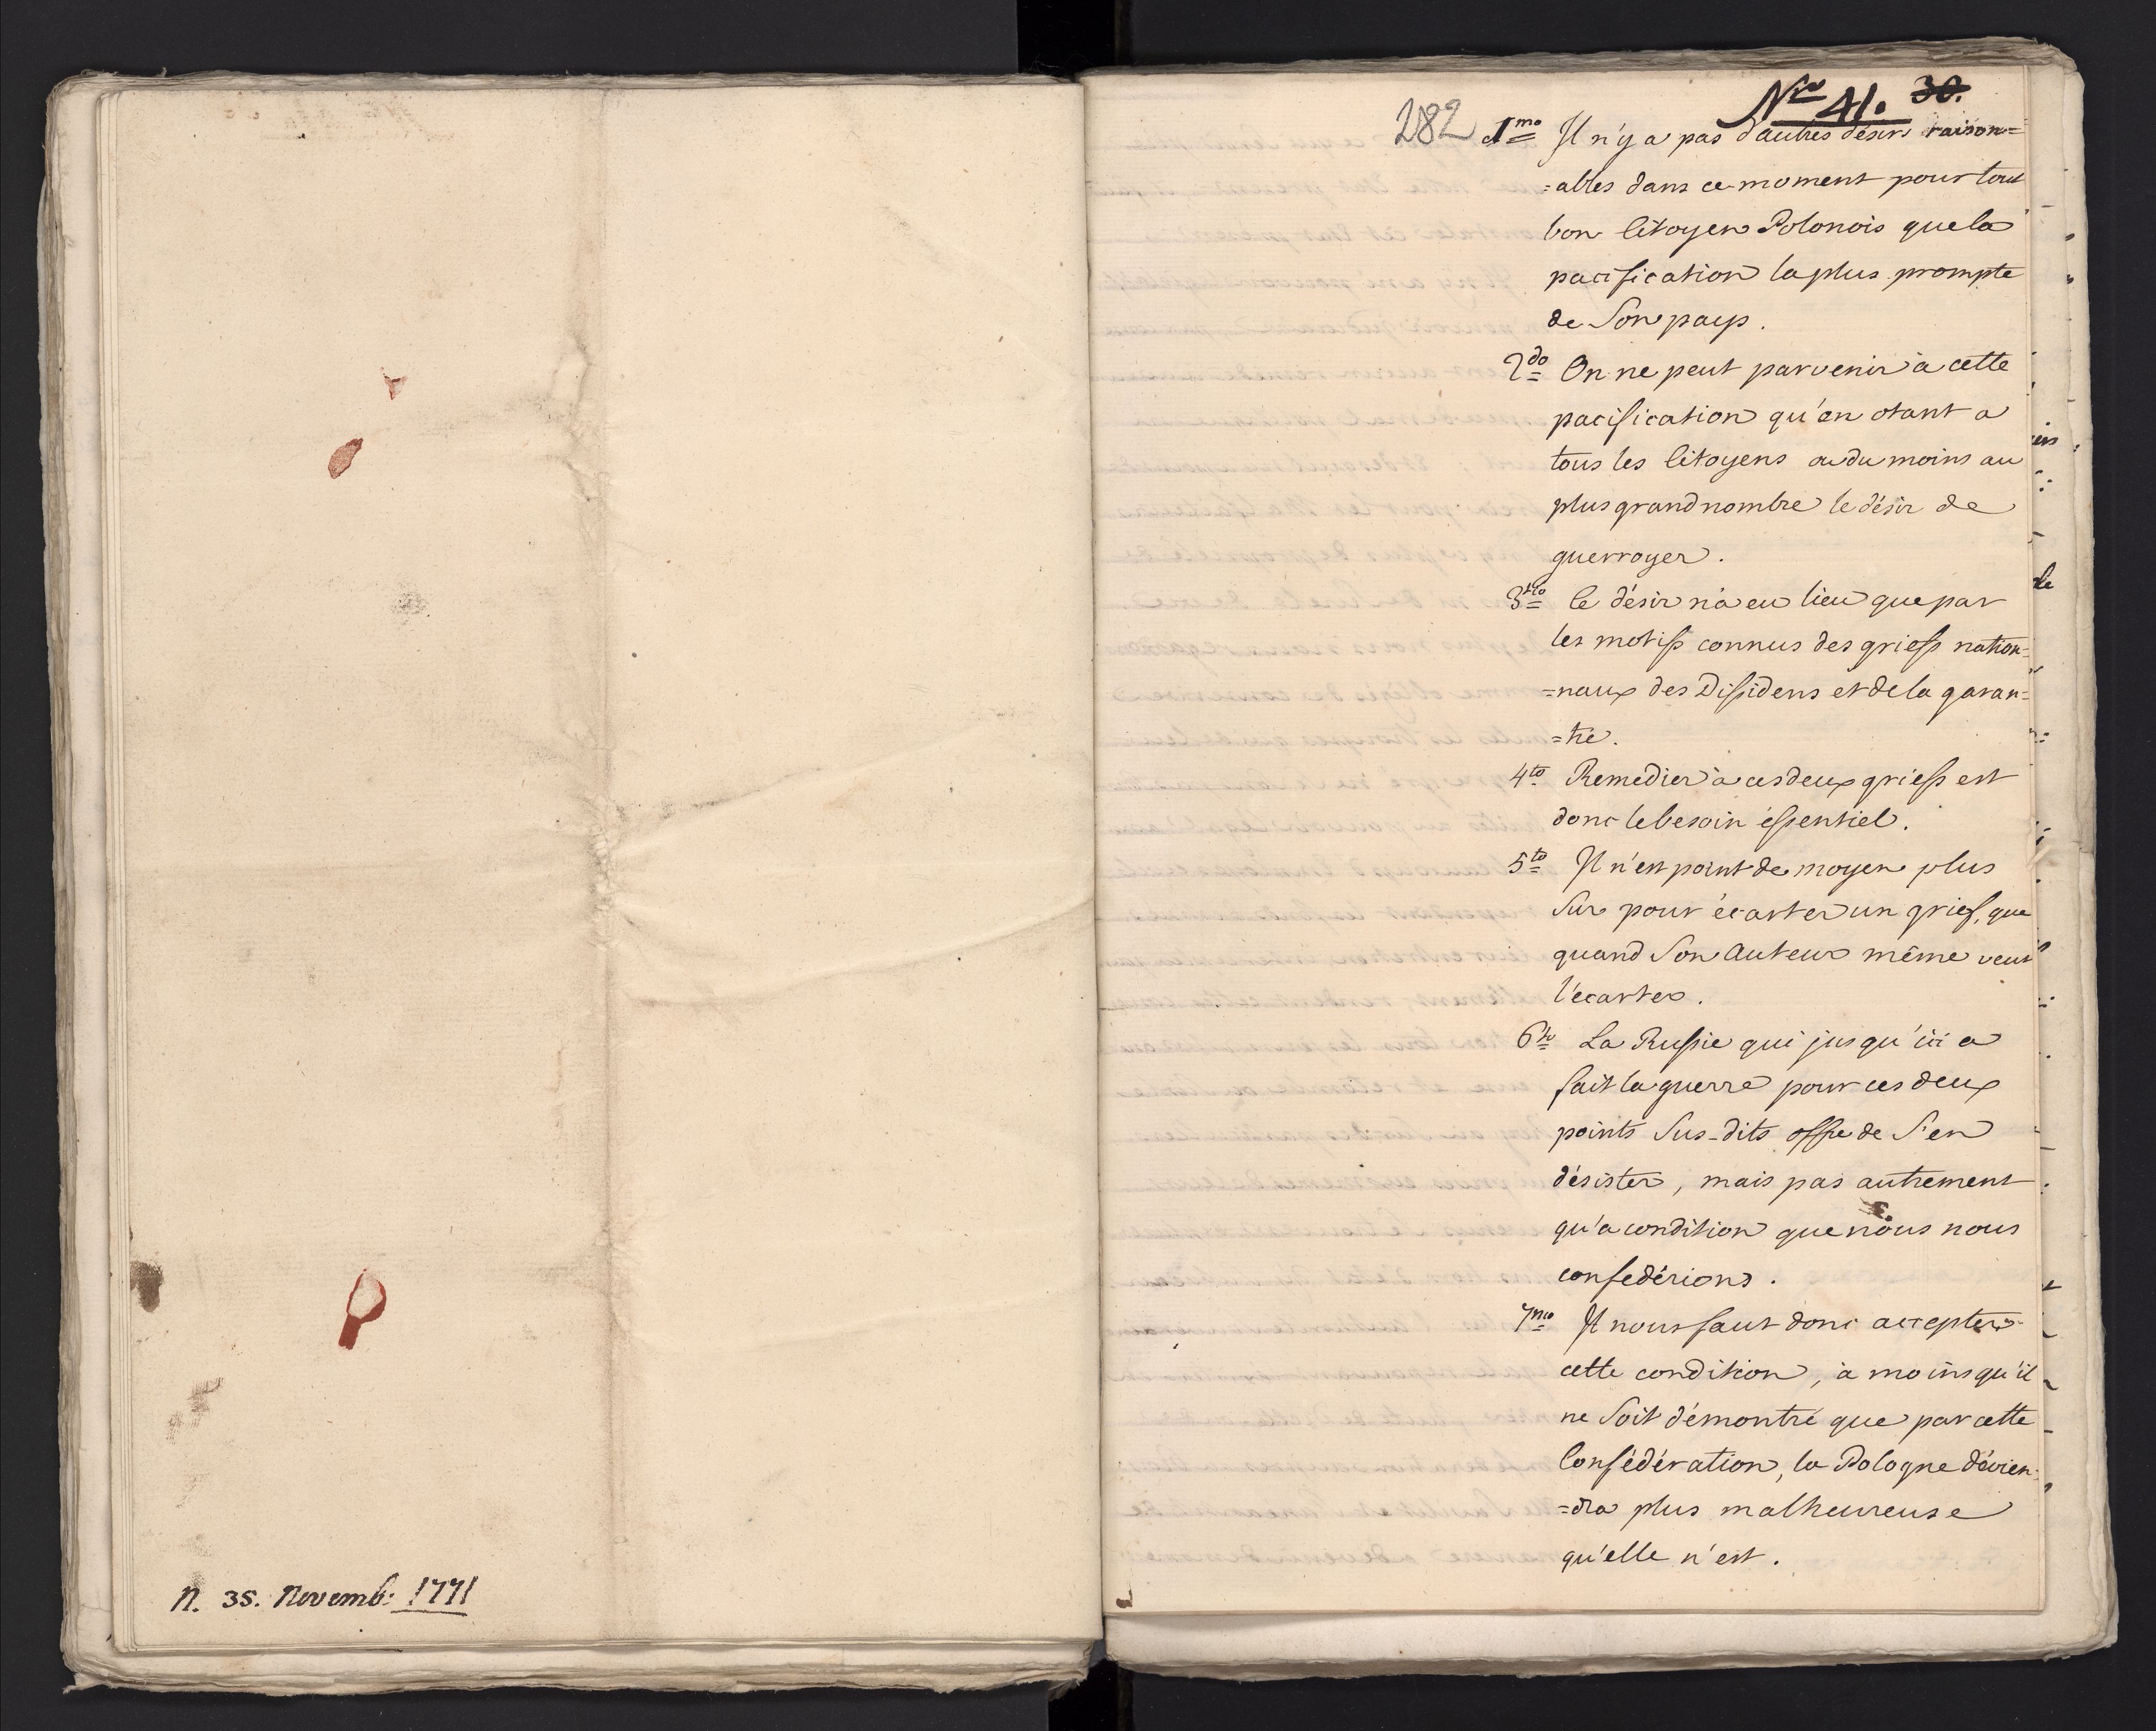 N. 35. Novemb: 1771
Nro 41. 30.
282
1mo Il n'y a pas d'autres désirs raison=
=ables dans ce moment pour tout
bon Citoyen Polonois que la
pacification la plus prompte
de Son pays.
2do On ne peut parvenir à cette
pacification qu'en otant a
tous les Citoyens ou du moins au
plus grand nombre le désir de
guerroyer.
3tio Ce désir n'a eu lieu que par
les motifs connus des griefs nation=
=naux des Dissidens et de la garan=
=tie.
4to Remedier à ces deux griefs est
donc le besoin éssentiel.
5to Il n'est point de moyen plus
Sur pour écarter un grief, que
quand Son Auteur même veut
l'écarter.
6to La Russie qui jusqu'ici a
fait la guerre pour ces deux
points Sus-dits offre de S'en
désister, mais pas autrement
qu'a condition que nous nous
confedérions.
7mo Il nous faut donc accepter
cette condition, à moins qu'il
ne Soit démontré que par cette
Confédération, la Pologne dévien=
=dra plus malheureuse
qu'elle n'est.